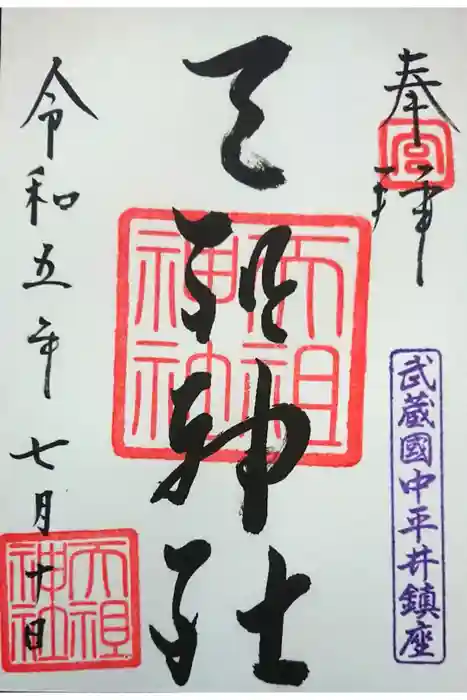 奉拝
宮
武蔵國中平井鎮座
天祖神社
天祖
神社
令和五年七月十日
天祖
神社